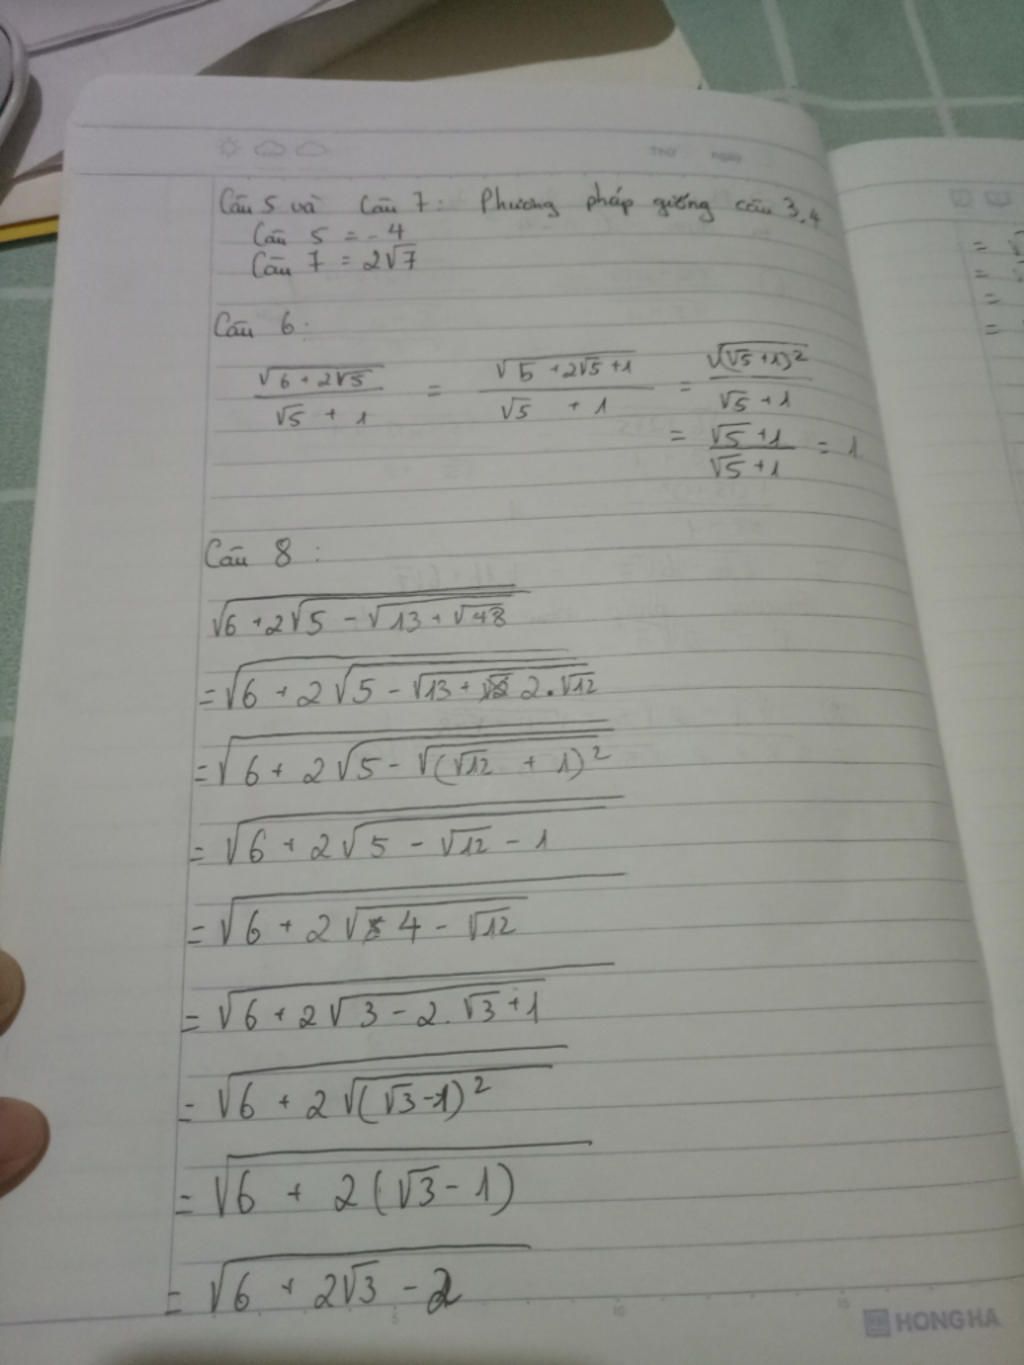 THỨ NGÀY
Câu 5 và Câu 7: Phương pháp giống câu 3,4
Câu 5 = -4
Câu 7 = 2√7
Câu 6:
√(6 + 2√5) / (√5 + 1) = √(5 + 2√5 + 1) / (√5 + 1) = √((√5 + 1)²) / (√5 + 1)
= (√5 + 1) / (√5 + 1) = 1
Câu 8:
√(6 + 2√(5 - √(13 + √48)))
= √(6 + 2√(5 - √(13 + 2.√12)))
= √(6 + 2√(5 - √((√12 + 1)²)))
= √(6 + 2√(5 - √12 - 1))
= √(6 + 2√(4 - √12))
= √(6 + 2√(3 - 2.√3 + 1))
= √(6 + 2√((√3 - 1)²))
= √(6 + 2(√3 - 1))
= √(6 + 2√3 - 2)
5 10 15
HONG HA